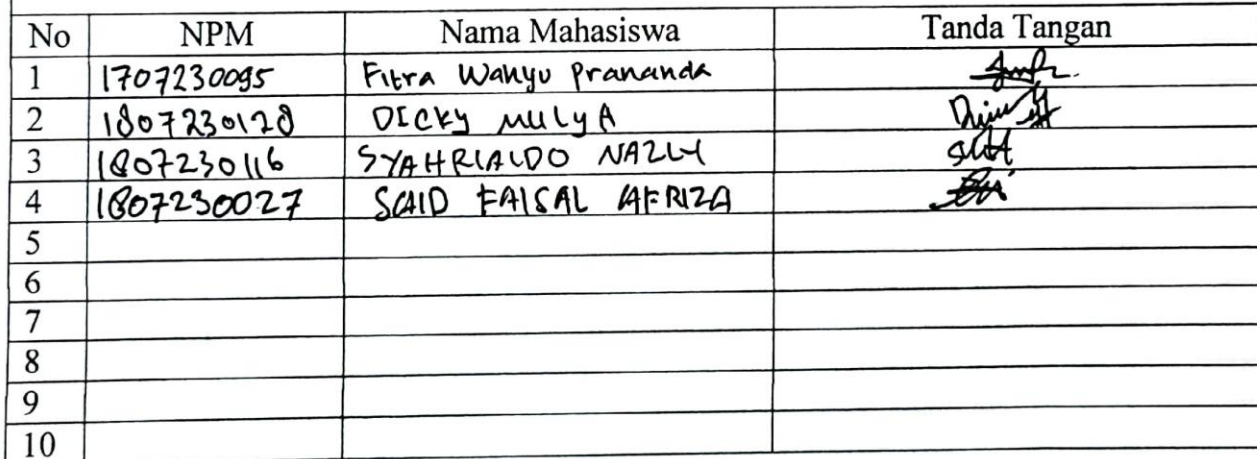 No NPM Nama Mahasiswa Tanda Tangan
1 1707230095 Fitra Wahyu Prananda
2 1807230128 DICKY MULYA
3 1807230116 SYAHRIALDO NAZLY
4 1807230027 SAID FAISAL AFRIZA
5
6
7
8
9
10